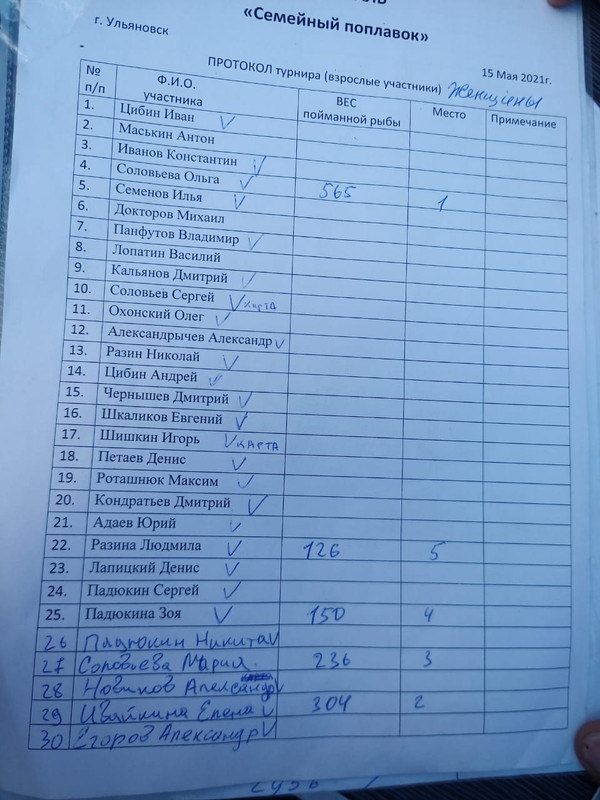 «Семейный поплавок»
г. Ульяновск
15 Мая 2021г.
ПРОТОКОЛ турнира (взрослые участники) Женщины
№ п/п Ф.И.О. участника ВЕС пойманной рыбы Место Примечание
1. Цибин Иван
2. Маськин Антон
3. Иванов Константин
4. Соловьева Ольга 565 1
5. Семенов Илья
6. Докторов Михаил
7. Панфутов Владимир
8. Лопатин Василий
9. Кальянов Дмитрий
10. Соловьев Сергей карта
11. Охонский Олег
12. Александрычев Александр
13. Разин Николай
14. Цибин Андрей
15. Чернышев Дмитрий
16. Шкаликов Евгений
17. Шишкин Игорь КАРТА
18. Петаев Денис
19. Роташнюк Максим
20. Кондратьев Дмитрий
21. Адаев Юрий
22. Разина Людмила 126 5
23. Лапицкий Денис
24. Падюкин Сергей
25. Падюкина Зоя 150 4
26 Падюкин Никита
27 Соловьева Мария. 236 3
28 Новиков Александр
29 Ивайкина Елена 304 2
30 Егоров Александр